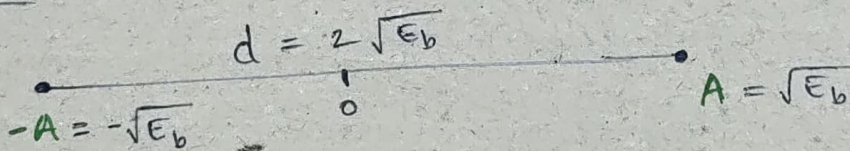 d = 2 √Eb
0
-A = -√Eb
A = √Eb